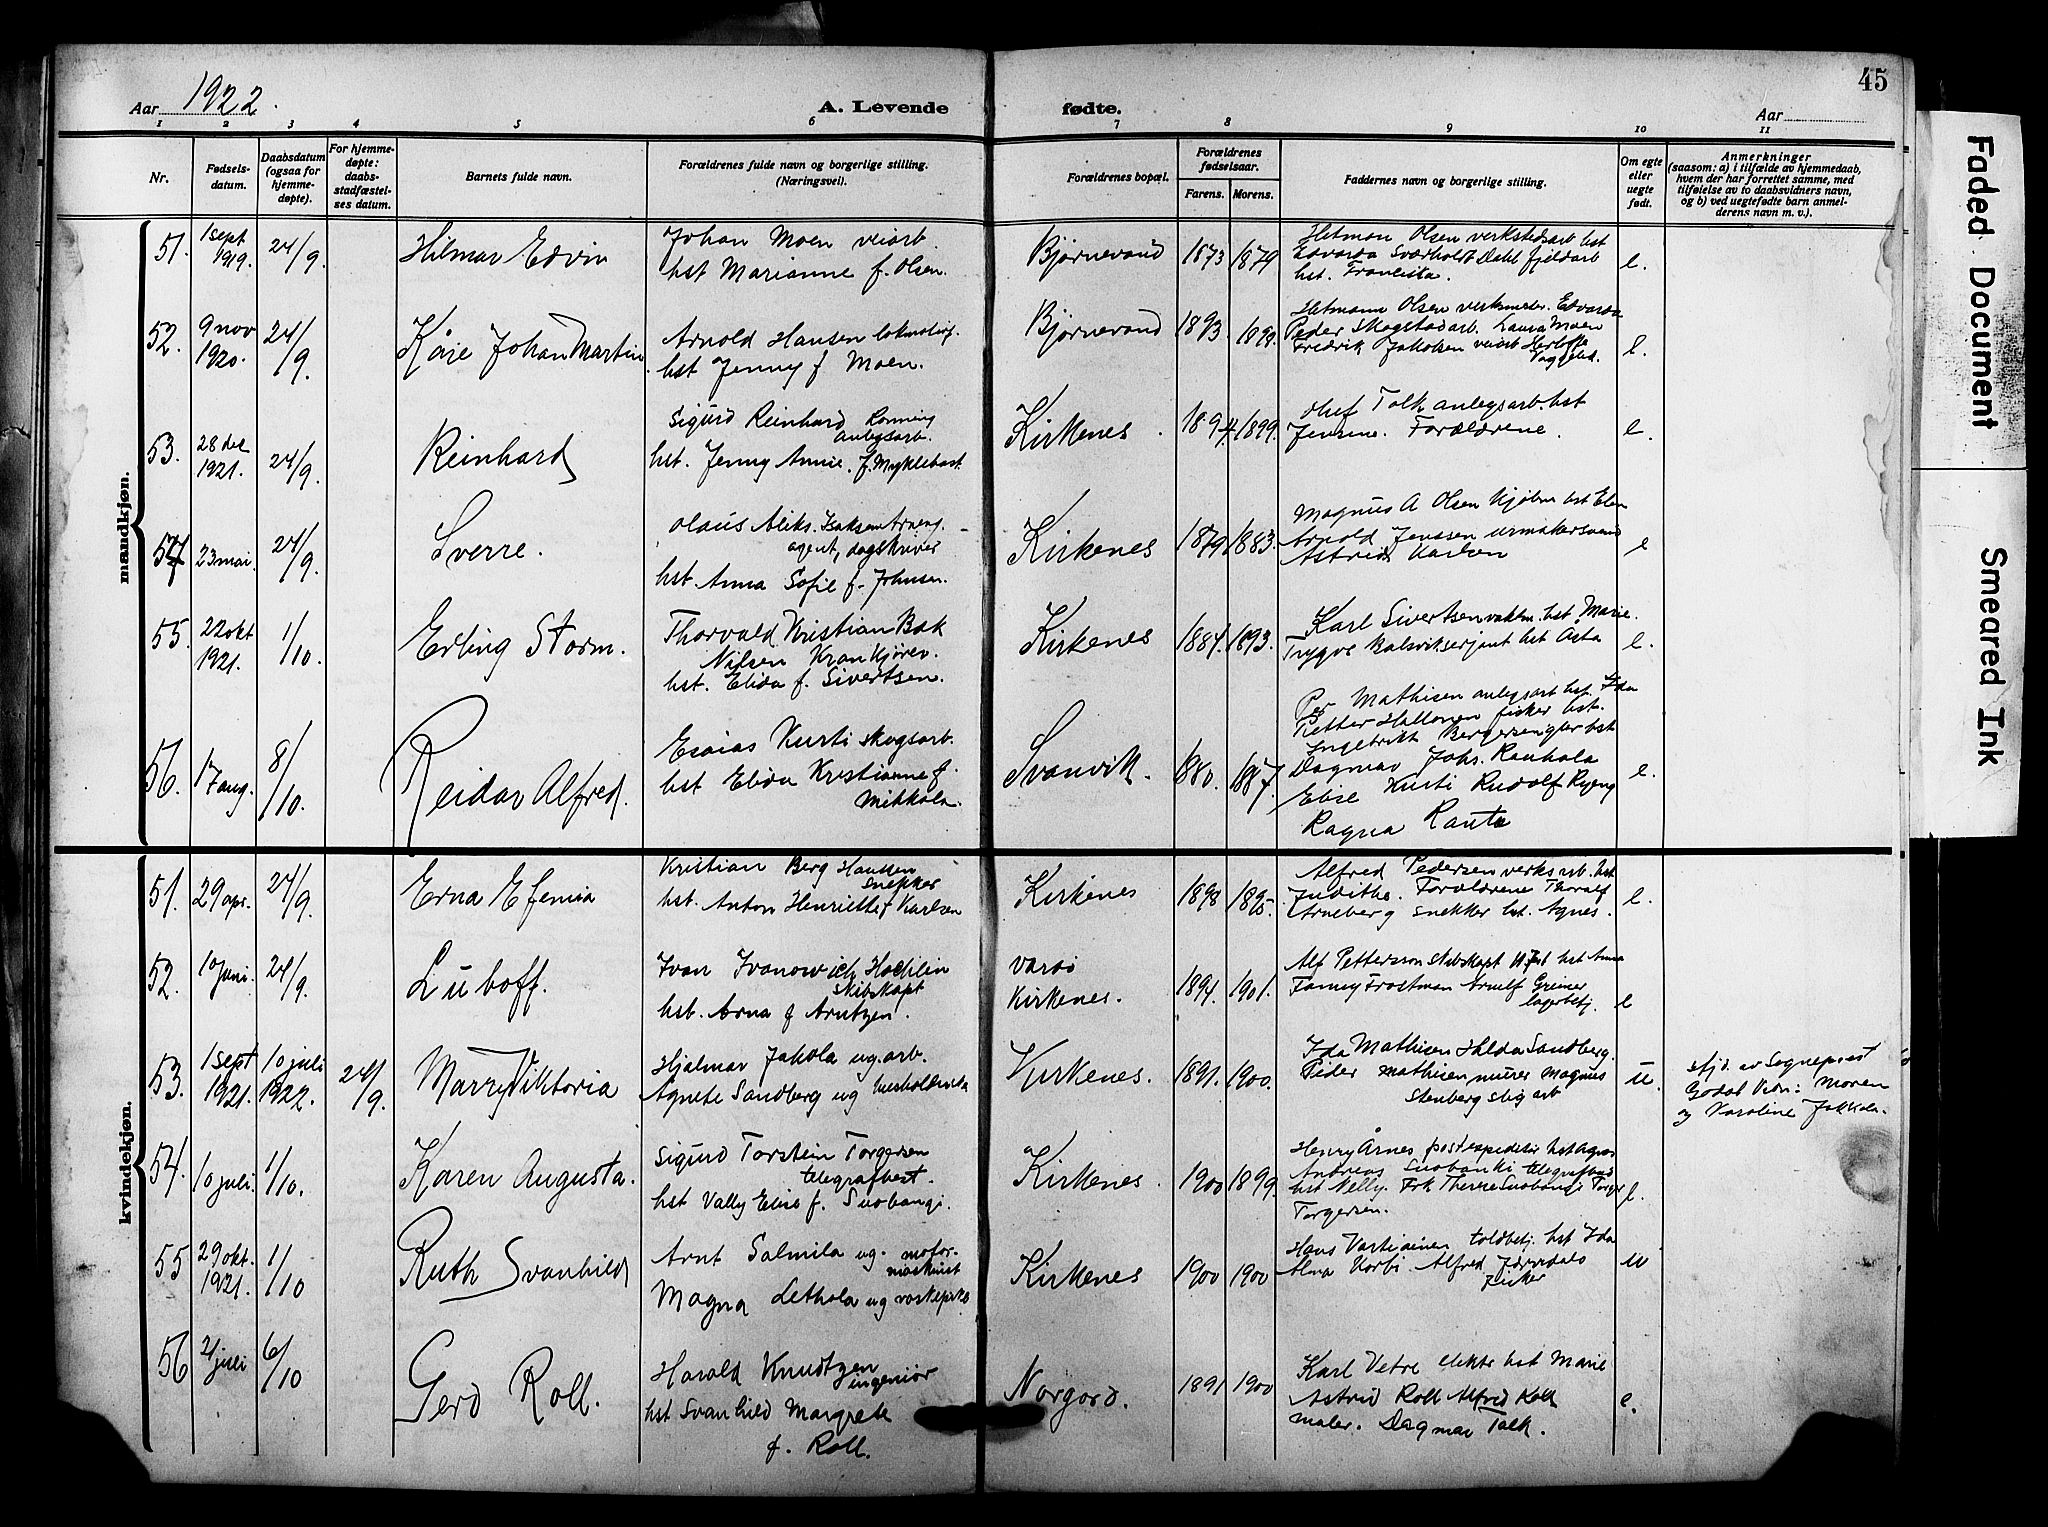 45
Aar 1922.
A. Levende fødte.
Aar
1 2 3 4 5 6 7 8 9 10 11
Nr.
Fødsels-
datum.
Daabsdatum
(ogsaa for
hjemme-
døpte).
For hjemme-
døpte:
daabs-
stadfæstel-
ses datum.
Barnets fulde navn.
Forældrenes fulde navn og borgerlige stilling.
(Næringsvei).
Forældrenes bopæl.
Forældrenes
fødselsaar.
Farens. Morens.
Faddernes navn og borgerlige stilling.
Om egte
eller
uegte
født.
Anmerkninger
(saasom: a) i tilfælde av hjemmedaab,
hvem der har forrettet samme, med
tilføielse av to daabsvidners navn,
og b) ved uegtefødte barn anmel-
derens navn m. v.).
mandkjøn.
51.
1 sept
1919.
24/9.
Hilmar Edvin
Johan Moen veiarb.
hst Marianne f. Olsen.
Bjørnevand
1873
1879
Hetman Olsen verkstedsarb hst
Edvarda Sværholt Dahl fjeldarb
hst. Franciska.
e.
52.
9 nov
1920.
24/9.
Kåre Johan Martin
Arnold Hansen
hst Jenny f Moen.
Bjørnevand
1893.
Hetmann Olsen Edvarda
Peder Skogstad arb. Laura Moen
Fredrik Jakobsen veiarb
e.
53.
28 des
1921.
24/9.
Reinhard
Sigurd Reinhard Rønning
anlegsarb.
hst. Jenny Annie. f. Myklebust
Kirkenes.
1894
1899.
Olaf Falk anlegsarb. hst
Jensine. Forældrene.
e.
54
23 mai.
24/9.
Sverre.
Olaus Aleks. Isaksen
agent, dagskriver
hst. Anna Sofie f. Johnsen.
Kirkenes
1879
1883.
Magnus A Olsen kjøbm hst
Arnold Jenssen urmakersvend
Astrid Karlsen
e
55.
22 okt
1921.
1/10.
Erling Storm.
Thorvald Kristian Bak
Nilsen Krankjører.
hst. Elida f. Sivertsen.
Kirkenes
1884.
1893.
Karl Sivertsen vaktm. hst. Marie.
Trygve Balsvik serjant hst Asta
e.
56.
17 aug.
8/10.
Reidar Alfred.
Esaias Kurti skogsarb.
hst Elida Kristianne f.
Mikkola.
Svanvik.
1880.
1887.
Per Mathisen anlegsarb hst. Ida
Petter Hallonen fisker hst.
Ingebrikt Bergersen hst
Dagmar Johs. Rauhala
Elise Kurti Rudolf Ryeng
Ragna Ranta
e.
kvindekjøn.
51.
29 apr.
24/9.
Erna Efemia
Kristian Berg Hanssen
snekker
hst. Anton Henriette f Karlsen
Kirkenes
1898
1895.
Alfred Pedersen verksarb. hst
Judithe. Forældrene Thoralf
Arneberg snekker hst. Agnes.
e.
52.
10 juni.
24/9.
Luboff.
Ivan Ivanowich
Skibskapt
hst. Arna f Arntzen.
Vardø
Kirkenes.
1894.
1901.
Alf Pettersson skibskapt hst Anna
Fanny Frostman Arnulf Greiner
lagerbetj.
e
53.
1 sept
1921.
10 juli
1922.
24/9.
Marry Viktoria
Hjalmar Jakola ug. arb.
Agnete Sandberg ug husholderske
Kirkenes.
1891.
1900.
Ida Mathisen Halda Sandberg.
Peder Mathisen murer Magnus
Stenberg arb
u.
av Sogneprest
Godal Vidn: Moren
og Karoline Jakkola.
54.
10 juli.
1/10.
Karen Augusta.
Sigurd Torstein Torgersen
telegrafbest.
hst Vally Elise f. Suobangi.
Kirkenes.
1900
1899.
Henry Årnes postexpeditør hst Agnes
Andreas Suobanki telegrafbud
hst Nelly. Frk Therese Suobangi
Torgersen.
e.
55
29 okt.
1921.
1/10
Ruth Svanhild
Arnt Salmila ug. motor-
maskinist
Magna Lethola ug vaskepike
Kirkenes
1900
1900
Hans Vartiainen toldbetj. hst Ida
Alma Korbi Alfred
fisker
u
56
4 juli
6/10
Gerd Roll.
Harald Knudtzen
ingeniør
hst Svanhild Margrete
f. Roll.
Norgord.
1891
1900
Karl Vetre elektr hst Marie
Astrid Roll Alfred Roll
maler. Dagmar Falk.
e.
Faded Document
Smeared Ink